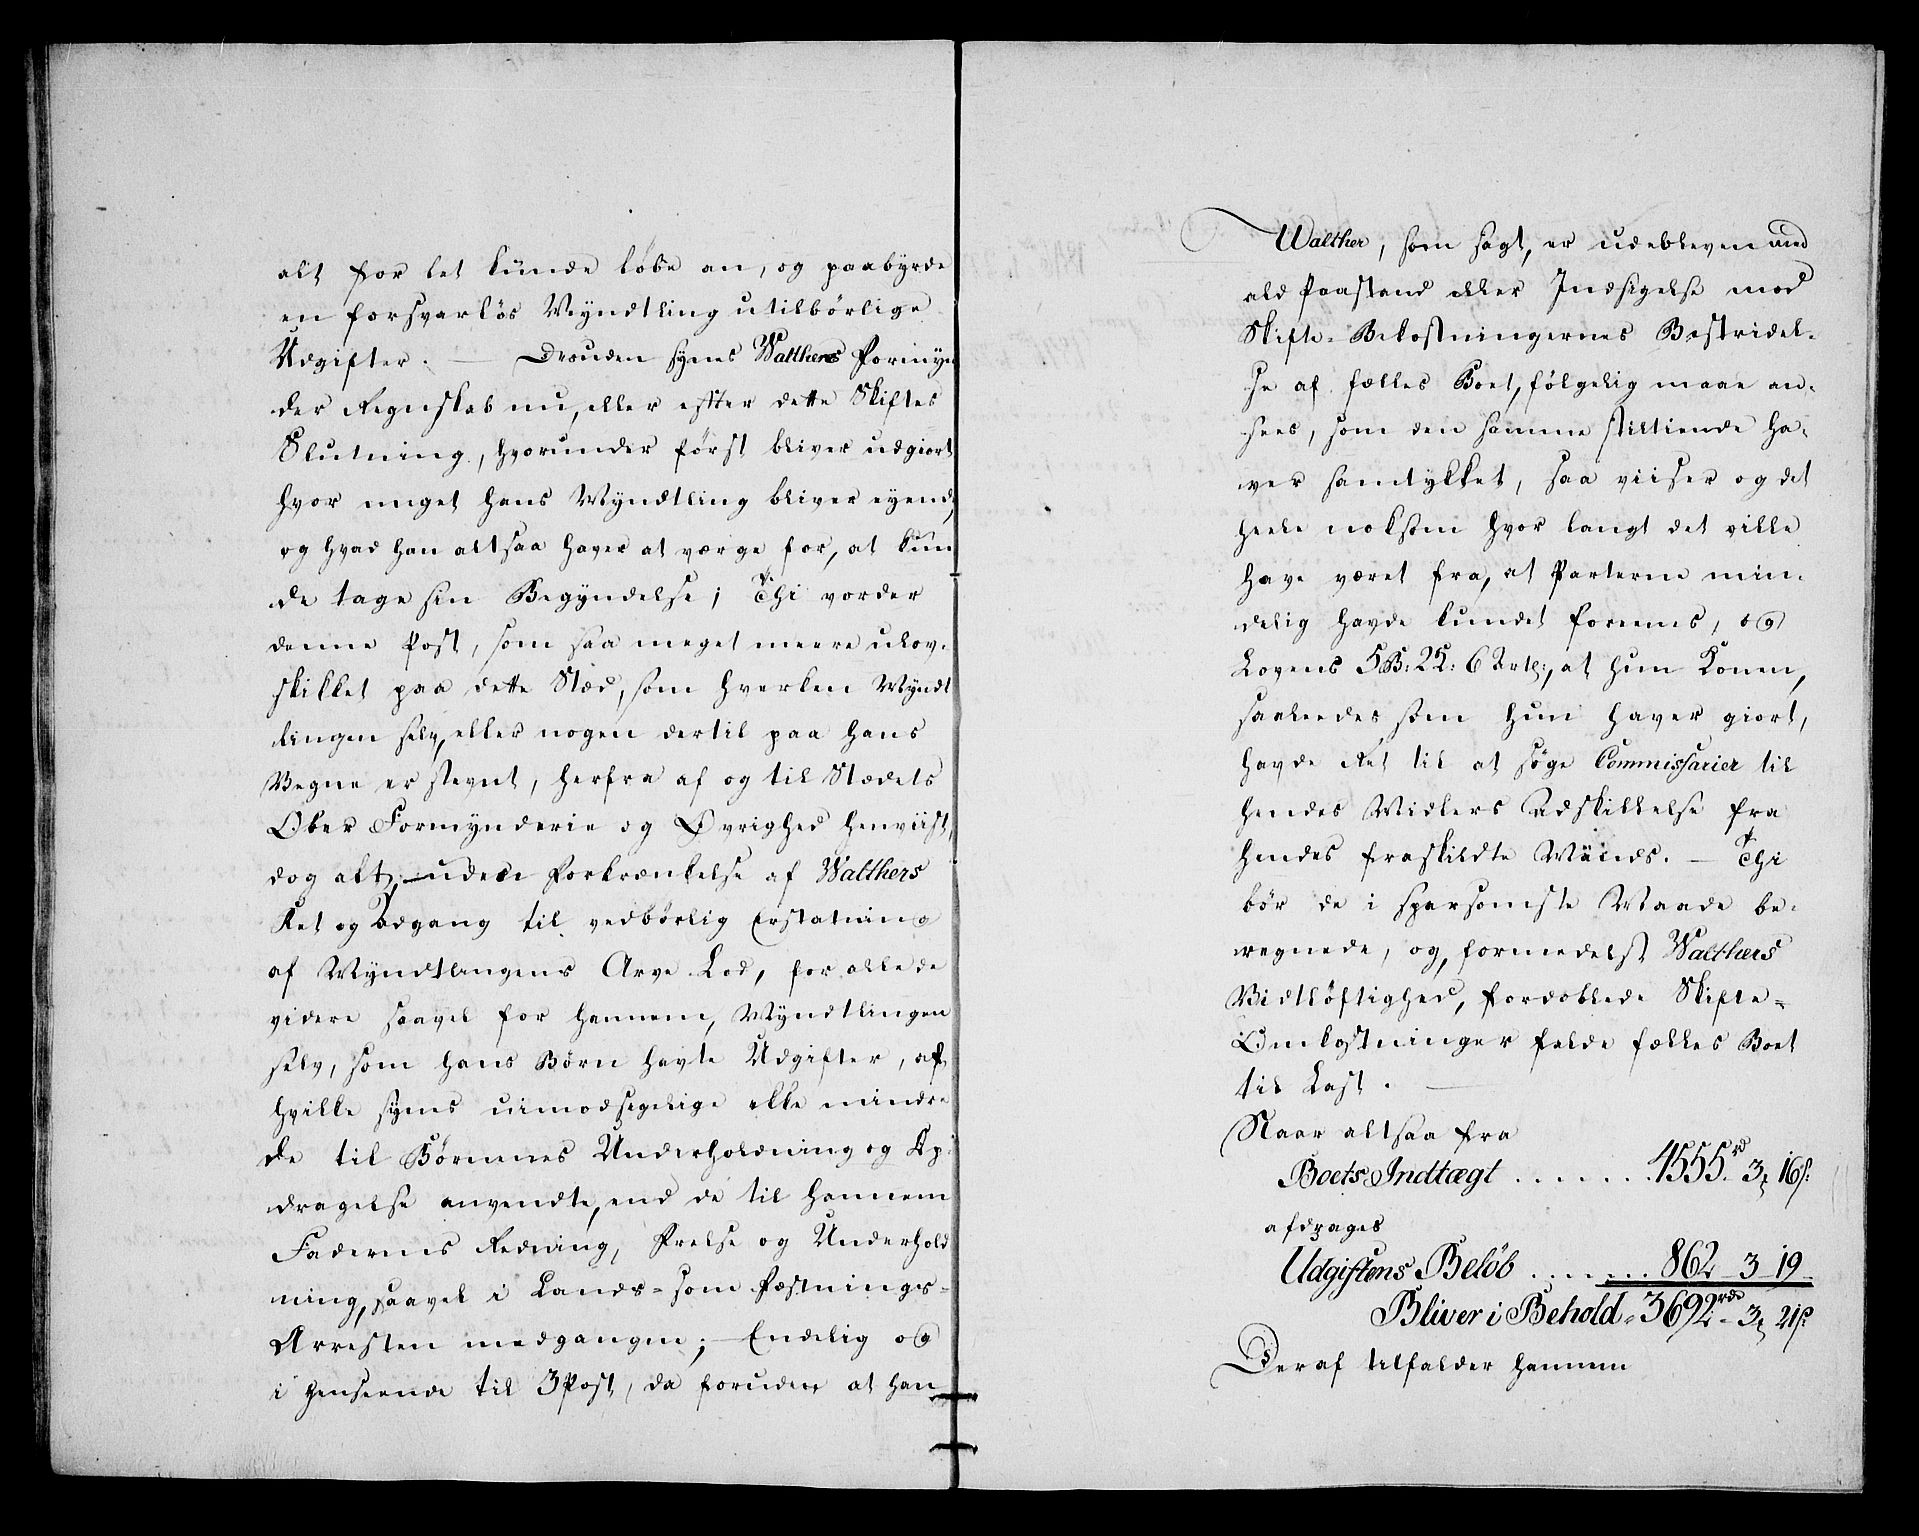 alt for let kunde løbe an, og paabyrde
en forsvarløs Myndtling utilbørlige
Udgifter. — Desuden synes Walthers Formyn
der Regnskab nu, eller efter dette Skiftes
Slutning, hvorunder først bliver udgiort
hvor meget hans Myndtling bliver eyende,
og hvad han altsaa haver at værge for, at kun
de tage sin Begyndelse; Thi vorder
denne Post, som saa meget meere ulov-
skikket paa dette Stæd, som hverken Myndt
lingen selv, eller nogen dertil paa hans
Vegne er stevnt, herfra af og til Stædets
Ober Formynderie og Øvrighed henviist,
dog alt, uden Forkrænkelse af Walthers
Ret og Adgang til vedbørlig Erstatning
af Myndtlingens Arve Lod, for alle de
videre saavel for hannem, Myndtlingen
selv, som hans Børn havte Udgifter, af
hvilke synes uimodsigelige ikke mindre
de til Børnenes Underholdning og Op-
dragelse anvendte, end de til hannem
Faderens Redning, Frelse og Underhold
ning, saavel i Lands- som Fæstnings-
Arresten medgangne; — Endelig og
i henseende til 3 Post, da foruden at han
Walther, som sagt, er udebleven med
ald Paastand eller Indsigelse mod
Skifte-Bekostningernes Bestridel-
se af fælles Boet, følgelig maae an-
sees, som den samme stiltiende ha-
ver samtykket, saa viiser og det
heele noksom hvor langt det ville
have været fra, at Parterne min-
delig havde kundet foreenes, og
Lovens 5 B: 2 C: 6 Artl:, at hun Konen,
saaleedes som hun haver giort,
havde Ret til at søge Commissarier til
hendes Midlers Adskillelse fra
hendes fraskildte Mands. — Thi
bør de i sparsomste Maade be-
regnede, og, formedelst Walthers
Vidtløftighed, fordoblede Skifte-
Omkostninger falde fælles Boet
til Last. —
Naar altsaa fra
Boets Indtægt . . . . . . . 4555 rd 3 ₰ 16 s:
afdrages
Udgiftens Beløb . . . . . . . 862 - 3 - 19 -
Bliver i Behold - 3692 rdr - 3 ₰ 21 s:
Deraf tilfalder hannem